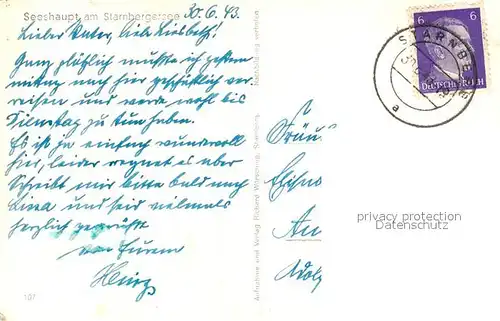 Seeshaupt am Starnbergersee 30.6.43.
Lieber Vater, liebe
Ganz plötzlich mußte ich gestern
mittag nach hier geschäftlich ver-
reisen und werde wohl bis
Dienstag zu tun haben.
Es ist ja einfach wundervoll
hier, leider regnet es aber
Schreibt mir bitte bald nach
und seid vielmals
herzlich gegrüßt
von Eurem
Heinz
107
Aufnahme und Verlag Richard Wörsching, Starnberg.
Nachbildung verboten
6 6
DEUTSCHES REICH
STARNBERG
a
Frau
An
Adolf
privacy protection
Datenschutz